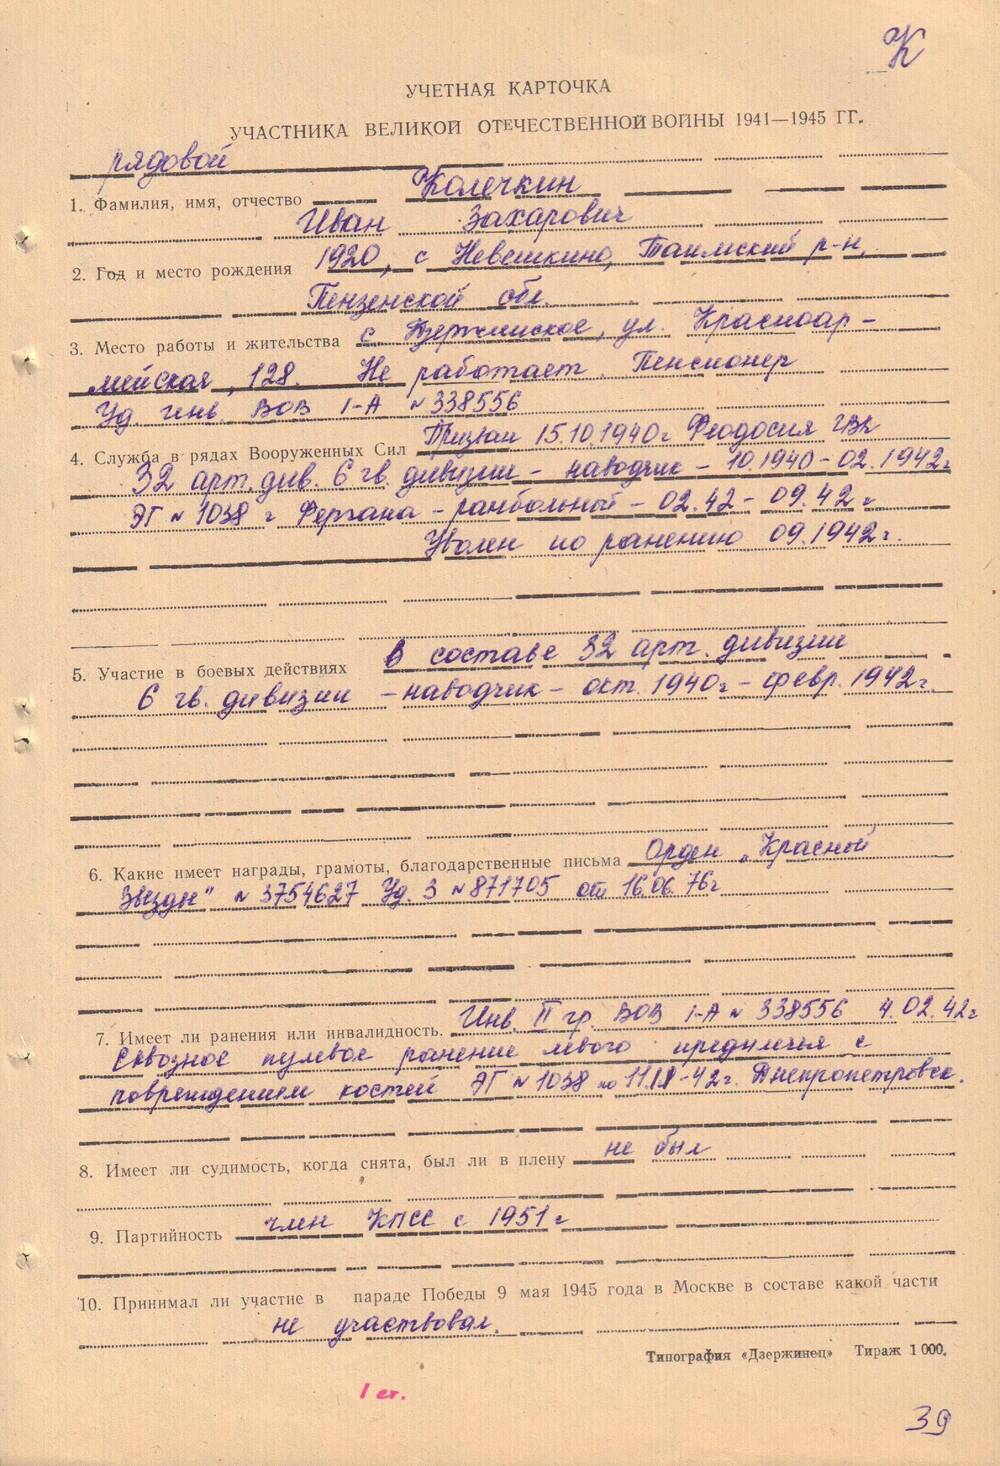 К
УЧЕТНАЯ КАРТОЧКА
УЧАСТНИКА ВЕЛИКОЙ ОТЕЧЕСТВЕННОЙ ВОЙНЫ 1941—1945 ГГ.
рядовой
1. Фамилия, имя, отчество Колечкин
Иван Захарович
2. Год и место рождения 1920, с Невешкино, Таимский р-н,
Пензенской обл.
3. Место работы и жительства с. Дзержинское, ул. Красноар-
мейская, 128. Не работает. Пенсионер
Уд. инв. ВОВ I-А № 338556
4. Служба в рядах Вооруженных Сил Призван 15.10.1940г Феодосия ГВК
32 арт. див. 6 гв. дивизии - наводчик - 10.1940-02.1942г
ЭГ № 1038 г Фергана - ранбольный - 02.42 - 09.42г
Уволен по ранению 09.1942г.
5. Участие в боевых действиях В составе 32 арт. дивизии
6 гв. дивизии - наводчик - окт. 1940г - февр. 1942г.
6. Какие имеет награды, грамоты, благодарственные письма Орден „Красной
Звезды" № 3754627 Уд. З № 871705 от 16.06.76г
7. Имеет ли ранения или инвалидность. Инв. II гр. ВОВ I-А № 338556 4.02.42г
Сквозное пулевое ранение левого предплечья с
повреждением костей ЭГ № 1038 по 11.IX-42г. Днепропетровск.
8. Имеет ли судимость, когда снята, был ли в плену не был
9. Партийность член КПСС с 1951г
10. Принимал ли участие в параде Победы 9 мая 1945 года в Москве в составе какой части
не участвовал.
Типография «Дзержинец» Тираж 1 000.
1 ст.
39